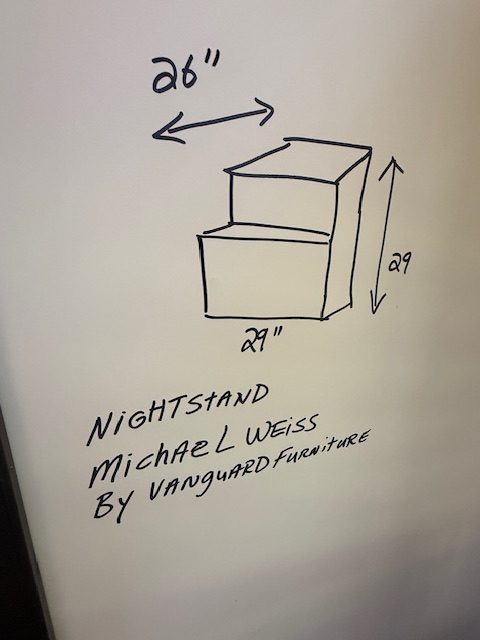 26"
29
29"
NIGHTSTAND
MichAEL WEISS
By VANGUARD FURNITURE